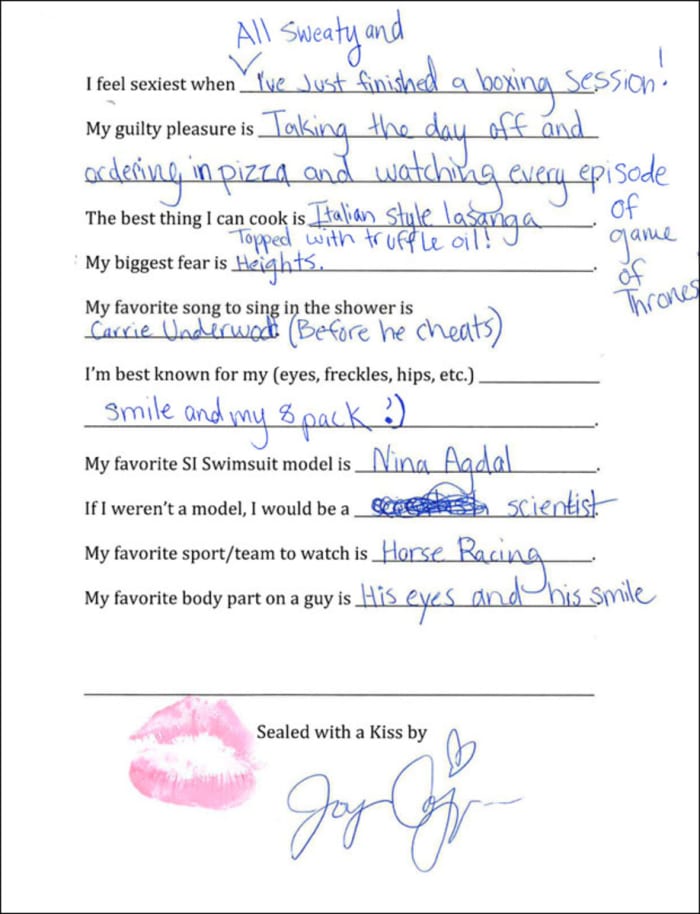 All sweaty and
I feel sexiest when I've Just finished a boxing session!
My guilty pleasure is Taking the day off and
ordering in pizza and watching every episode
of
game
of
Thrones
The best thing I can cook is Italian style lasanga.
Topped with truffle oil!
My biggest fear is Heights.
My favorite song to sing in the shower is
Carrie Underwood (Before he cheats)
I'm best known for my (eyes, freckles, hips, etc.)
smile and my 8 pack :).
My favorite SI Swimsuit model is Nina Agdal.
If I weren't a model, I would be a scientist
My favorite sport/team to watch is Horse Racing.
My favorite body part on a guy is His eyes and his smile
Sealed with a Kiss by